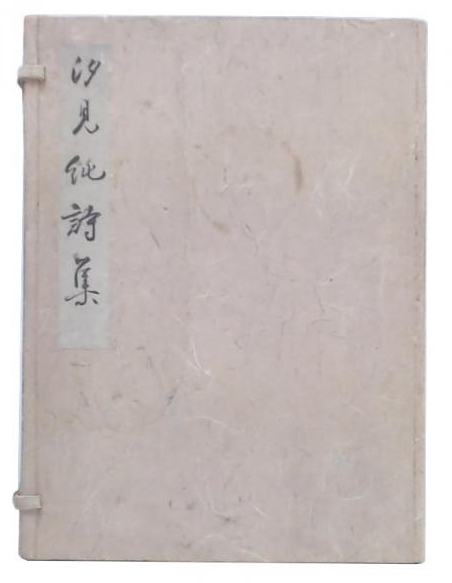 汐見純詩集